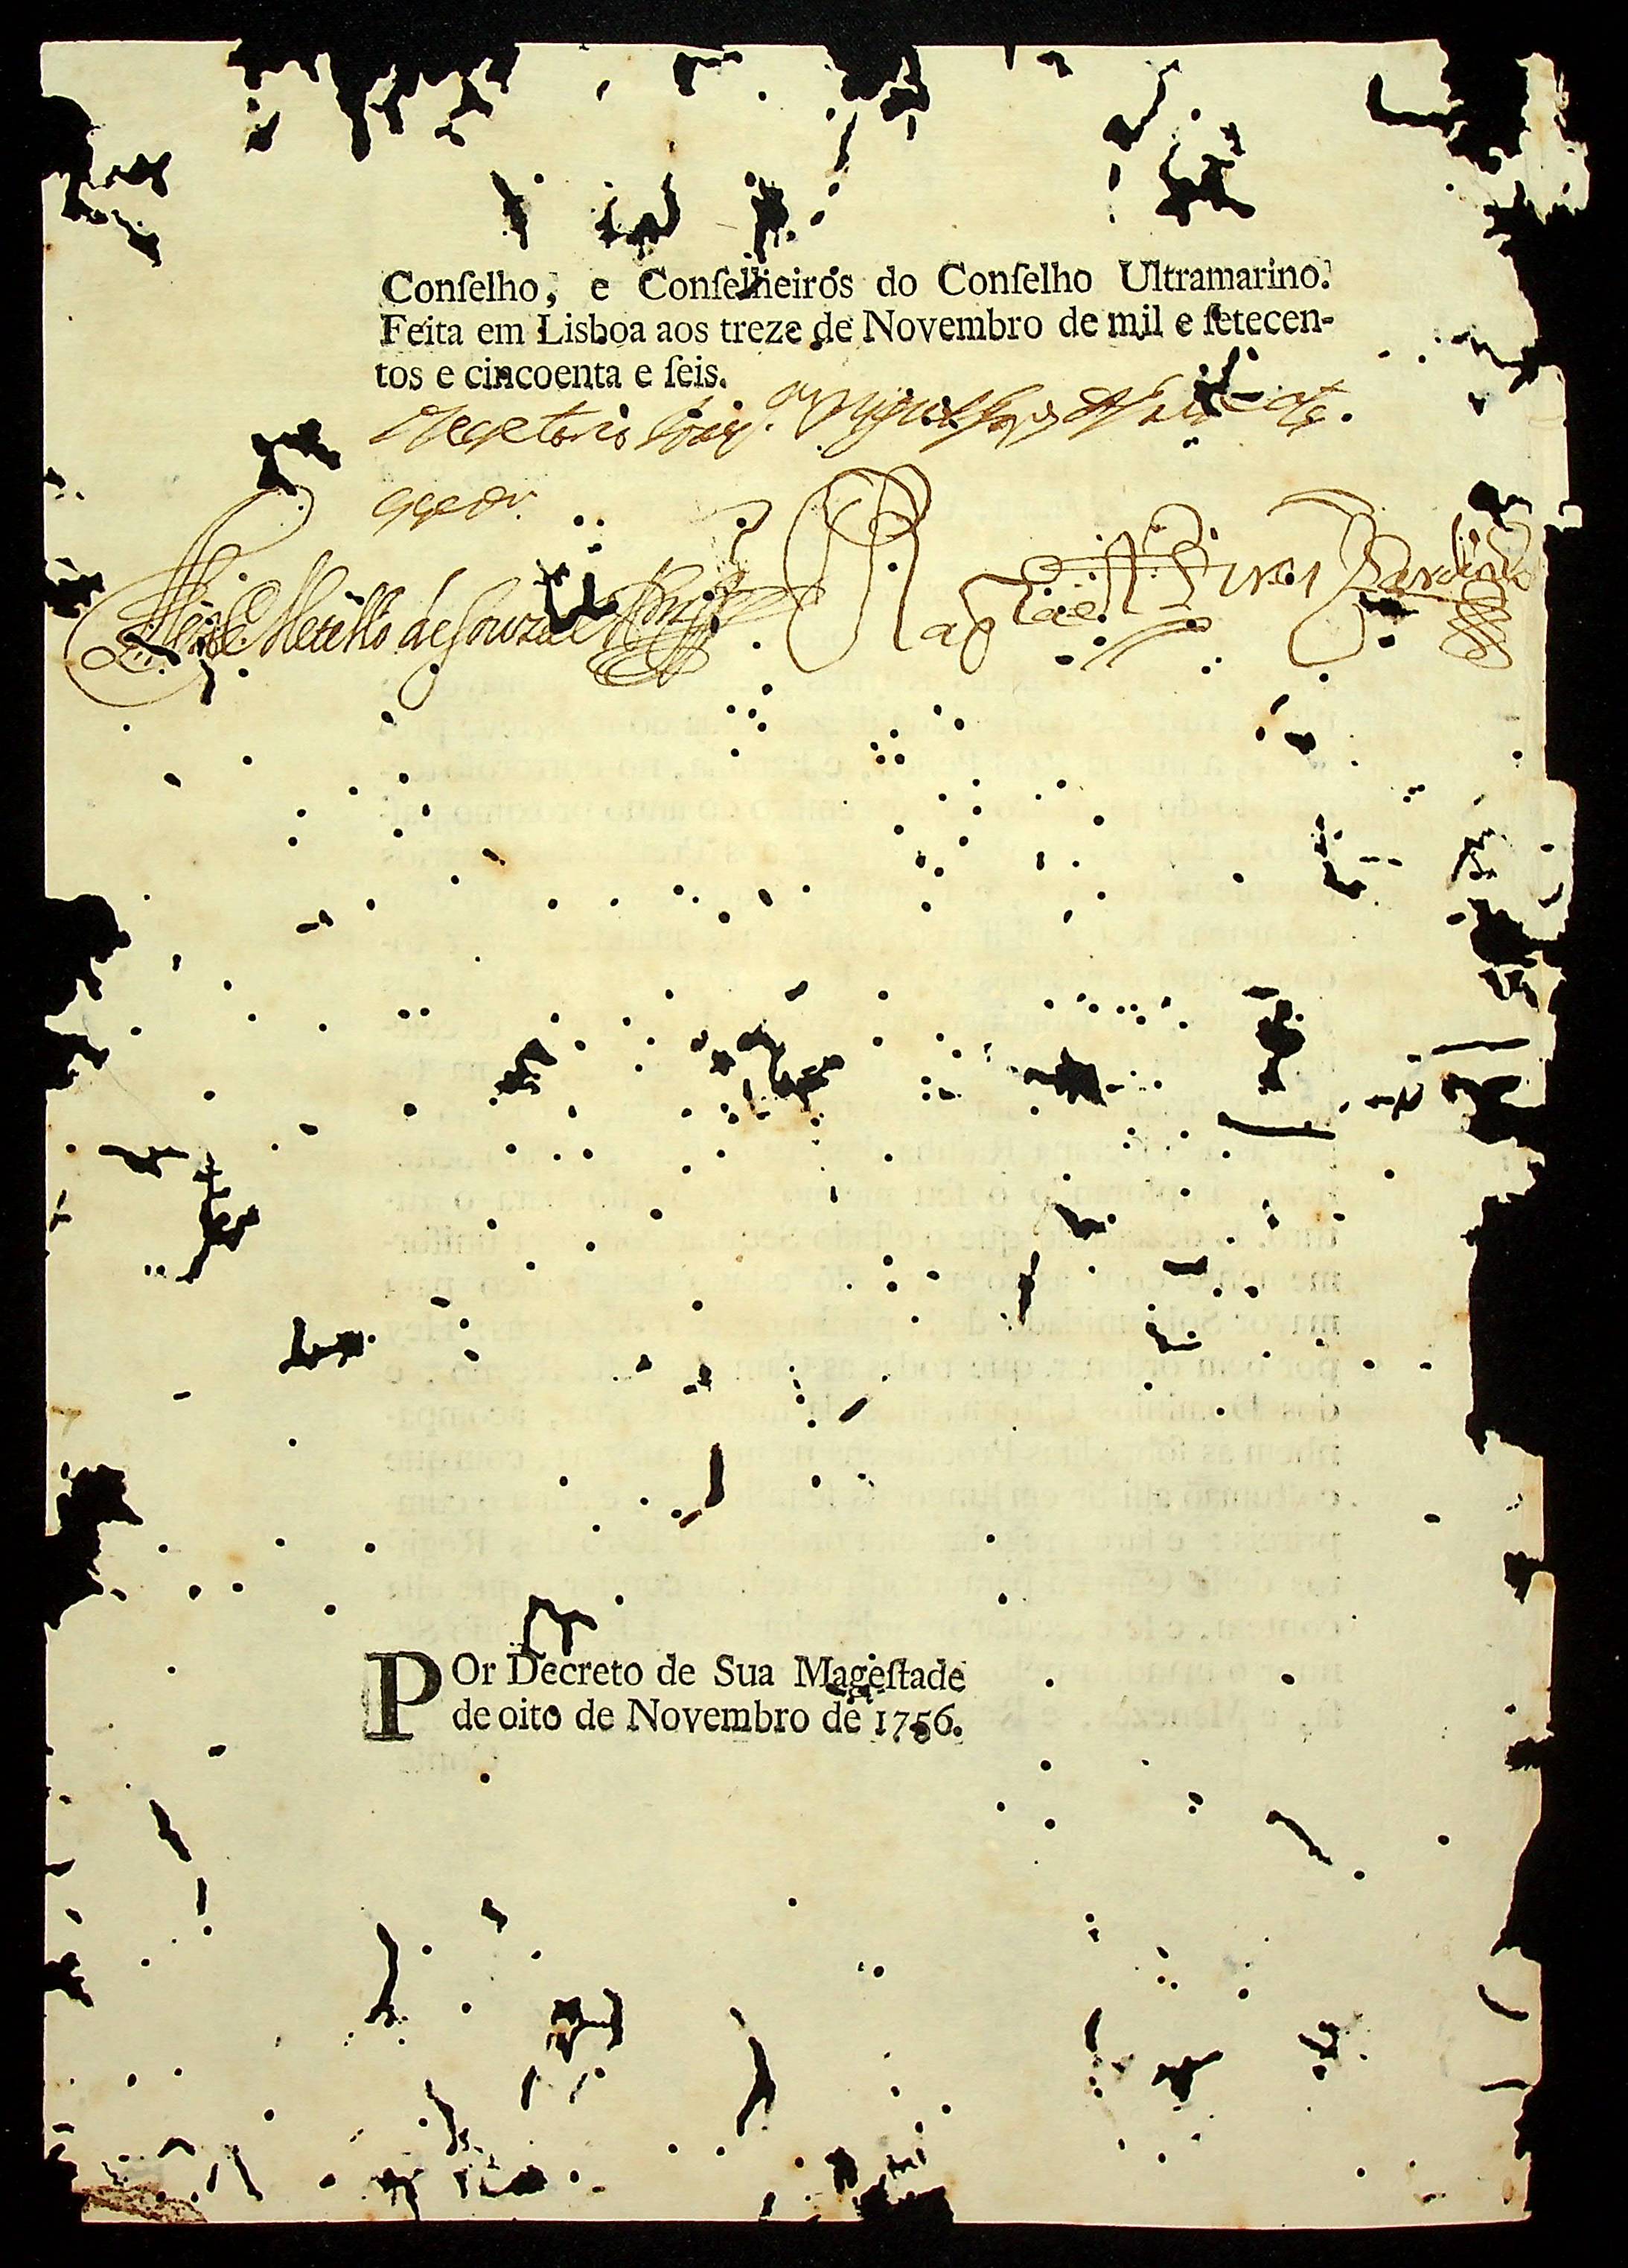 Conſelho, e Conſelheiros do Conſelho Ultramarino.
Feita em Lisboa aos treze de Novembro de mil e ſetecen-
tos e cincoenta e ſeis.
Miguel Lopes
Metello de Souza e
Rafael Pires Pardinho
POr Decreto de Sua Mageſtade
de oito de Novembro de 1756.